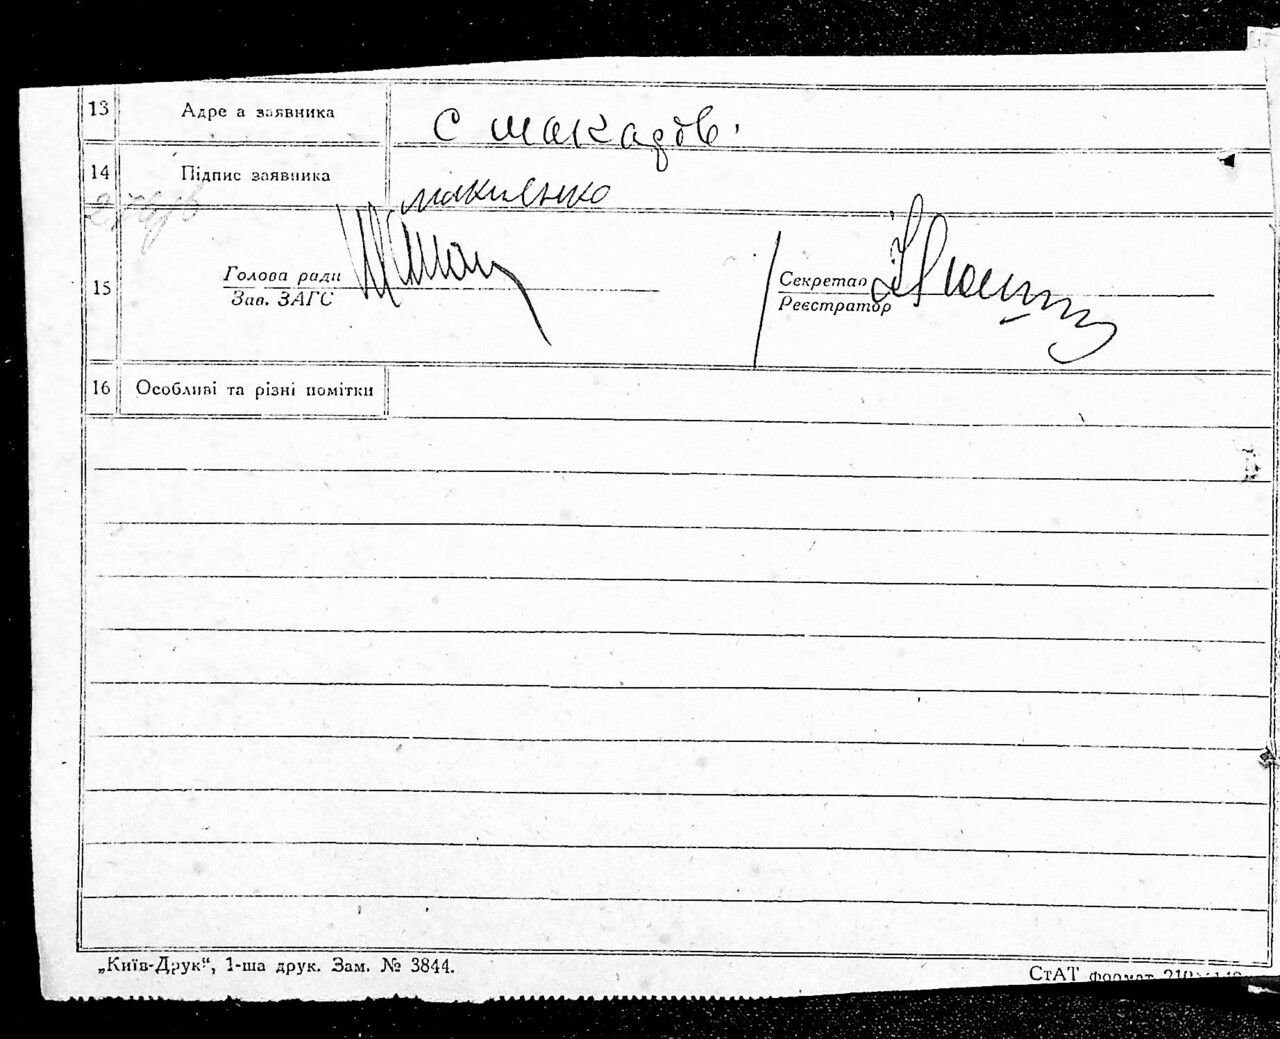 13 Адре а заявника с макарів.
14 Підпис заявника макиенко
15 Голова ради
Зав. ЗАГС
Секретар
Реєстратор
16 Особливі та різні помітки
„Київ-Друк“, 1-ша друк. Зам. № 3844.
СтАТ формат 210×148